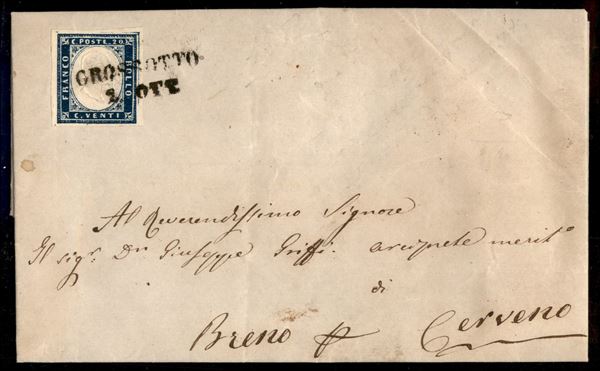 C. POSTE. 20.
FRANCO
BOLLO
C. VENTI
GROSSOTTO
2 OTT
Al Reverendissimo Signore
Il sigr. Dn Giuseppe Griffi. arciprete merito
di
Breno Cerveno